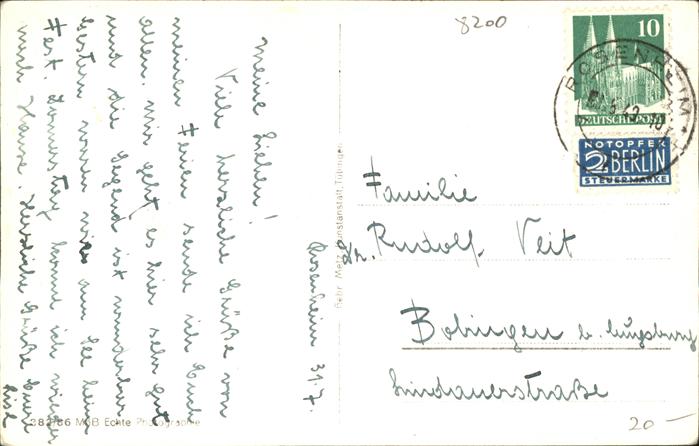 8200
10
DEUTSCHE POST
ROSENHEIM
NOTOPFER
2 BERLIN
STEUERMARKE
Rosenheim 31.7.
Meine Lieben!
Viele herzliche Grüße von
meinen Ferien sende ich Euch
allen. Mir geht es hier sehr gut
und die Gegend ist wunderbar
Gestern waren wir am See beim
Fest. Donnerstag komme ich wieder
nach Hause. Herzliche Grüße Eure
Lisl
Familie
Rudolf Veit
Bobingen b. Augsburg
Lindauerstraße
Gebr. Metz, Kunstanstalt, Tübingen
MGB Echte Photographie
20-